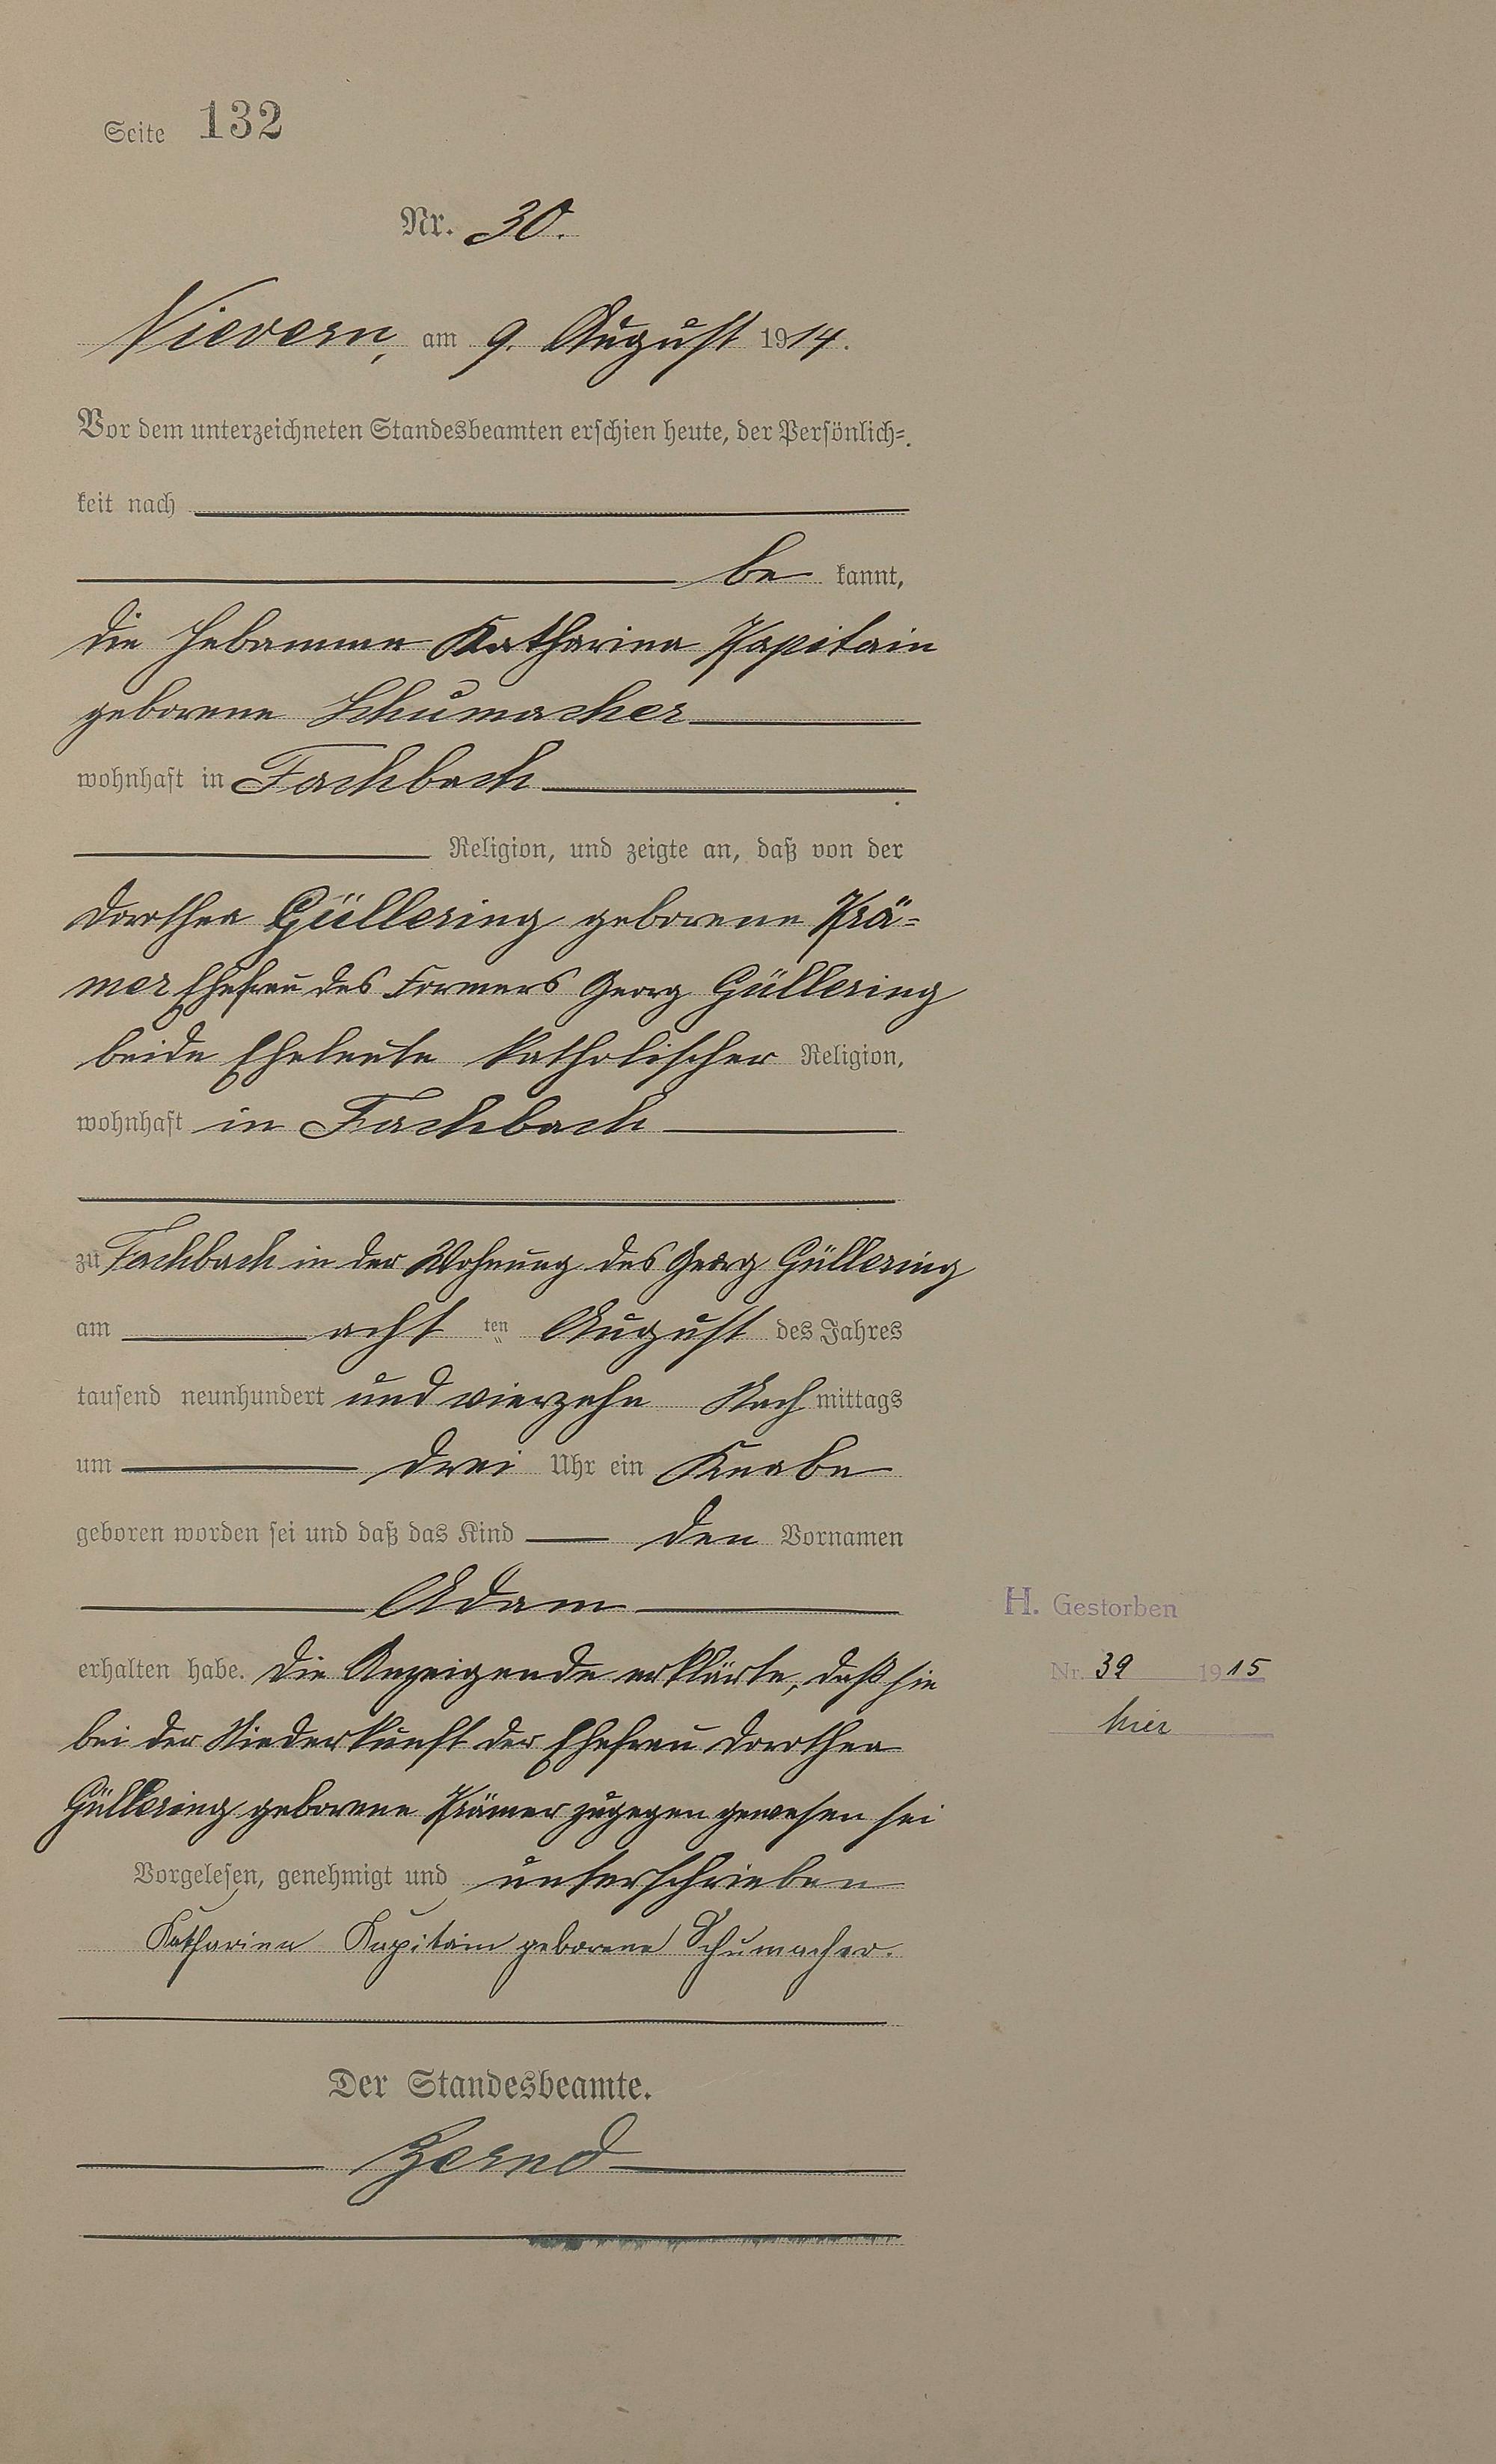 Seite 132
Nr. 30.
Nievern, am 9. August 1914.
Vor dem unterzeichneten Standesbeamten erschien heute, der Persönlich=
keit nach
be kannt,
die Hebamme Katharina Kapitain
geborene Schumacher
wohnhaft in Fachbach
Religion, und zeigte an, daß von der
Dorothea Güllering geborene Krä=
mer Ehefrau des Formers Georg Güllering
beide Eheleute katholischer Religion,
wohnhaft in Fachbach
zu Fachbach in der Wohnung des Georg Güllering
am acht ten August des Jahres
tausend neunhundert und vierzehn Nach mittags
um drei Uhr ein Knabe
geboren worden sei und daß das Kind den Vornamen
Adam
H. Gestorben
erhalten habe. Die Anzeigende erklärte, daß sie
Nr. 39 1915
bei der Niederkunft der Ehefrau Dorothea
hier
Güllering geborene Krämer zugegen gewesen sei
Vorgelesen, genehmigt und unterschrieben
Katharina Kapitain geborene Schumacher.
Der Standesbeamte.